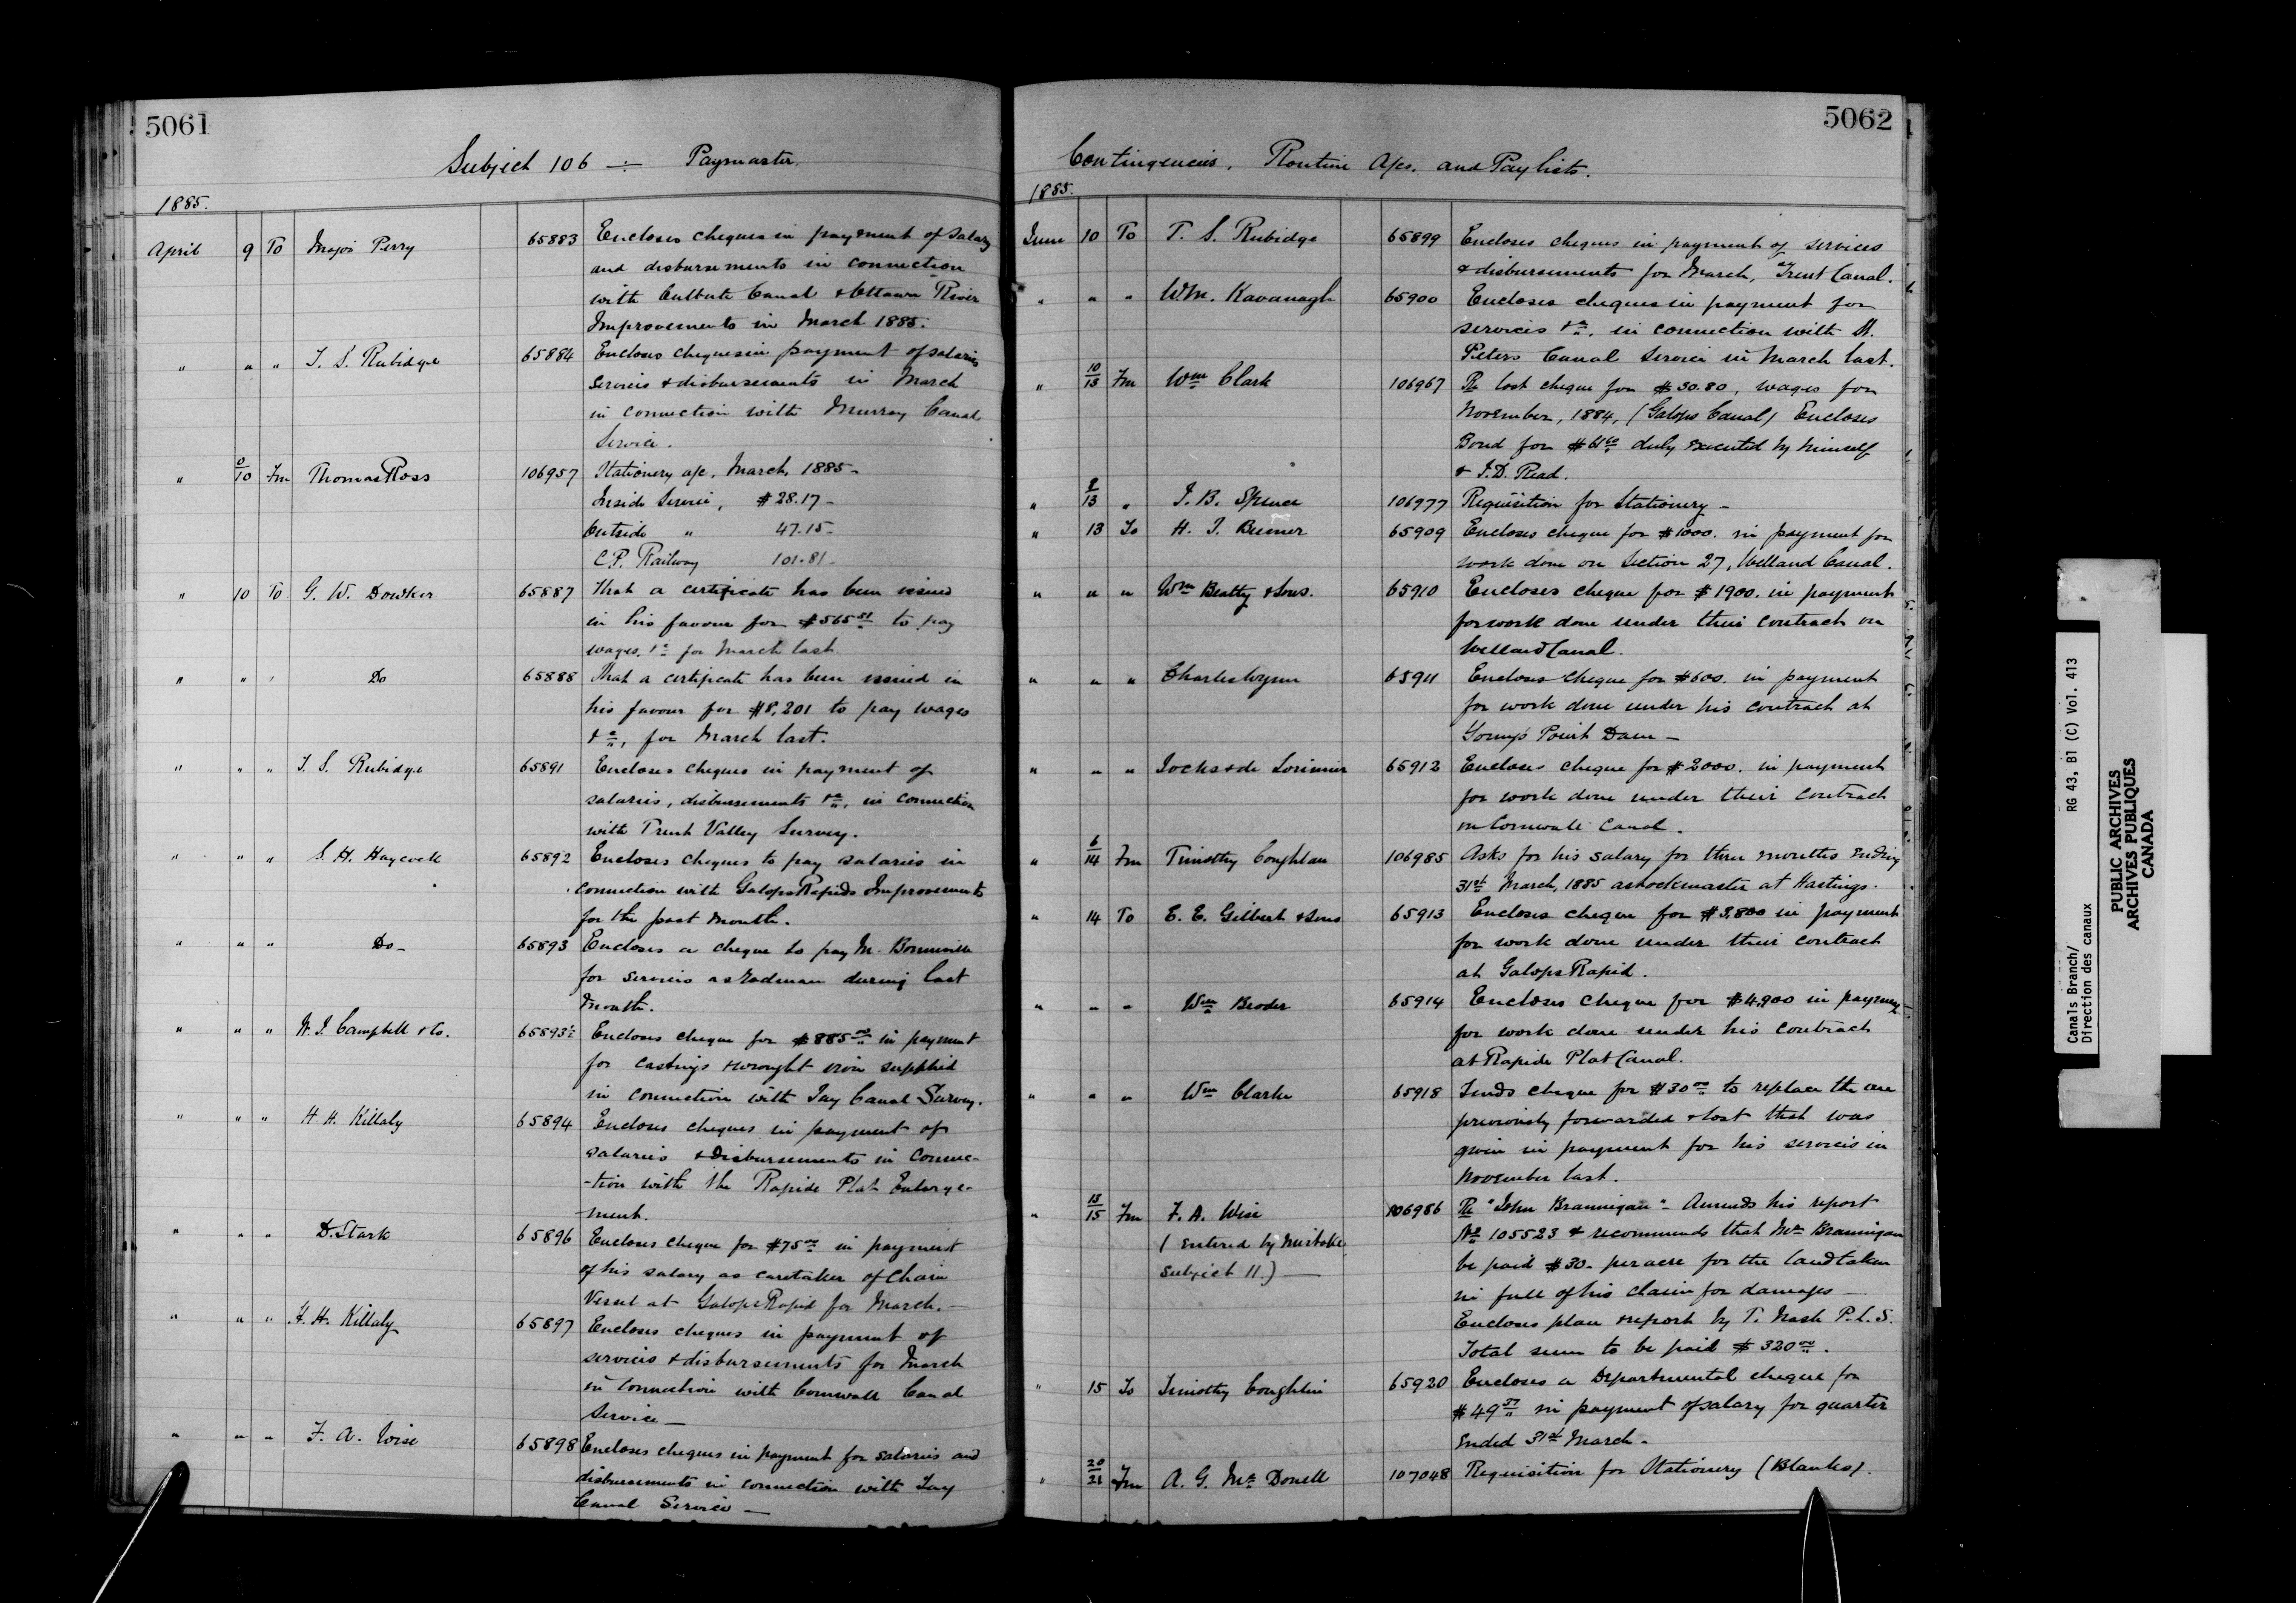 5061
Subject 106 -:- Paymaster.
1885.
April 9 To Major Perry 65883 Encloses cheques in payment of salary
and disbursements in connection
with Culbute Canal & Ottawa River
Improvements in March 1885.
" " " T. S. Rubidge 65884 Encloses cheques in payment of salaries
services & disbursements in March
in connection with Murray Canal
Service.
" 9/10 Fm Thomas Ross 106957 Stationery a/c. March, 1885-
Inside Service, $28.17-
Outside " 47.15-
C.P. Railway 101.81-
" 10 To G. W. Dowker 65887 That a certificate has been issued
in his favour for $565 51 to pay
wages, &c for March last.
" " " Do 65888 That a certificate has been issued in
his favour for $8,201 to pay wages
&c, for March last.
" " " T. S. Rubidge 65891 Encloses cheques in payment of
salaries, disbursements &c, in connection
with Trent Valley Survey.
" " " S. H. Haycock 65892 Encloses cheques to pay salaries in
connection with Galops Rapids Improvements
for the past month.
" " " Do- 65893 Encloses a cheque to pay M. Bonneville
for services as rodman during last
month.
" " " W. J. Campbell & Co. 65893½ Encloses cheque for $885 00 in payment
for castings & wrought iron supplied
in connection with Tay Canal Survey.
" " " H. H. Killaly 65894 Encloses cheques in payment of
salaries & disbursements in connec-
-tion with the Rapide Plat Enlarge-
ment.
" " " D. Stark 65896 Encloses cheque for $75 00 in payment
of his salary as caretaker of Chain
Vessel at Galops Rapid for March.-
" " " H. H. Killaly 65897 Encloses cheques in payment of
services & disbursements for March
in connection with Cornwall Canal
Service-
" " " F. A. Wise 65898 Encloses cheques in payment for salaries and
disbursements in connection with Tay
Canal Service-
5062
Contingencies, Routine A/cs. and Pay lists.
1885.
June 10 To T. S. Rubidge 65899 Encloses cheques in payment of services
& disbursements for March, Trent Canal.
" " " Wm. Kavanagh 65900 Encloses cheques in payment for
services &c, in connection with St.
Peters Canal Service in March last.
" 10/13 Fm Wm Clark 106967 Re lost cheque for $30.80, wages for
November, 1884, (Galops Canal) Encloses
Bond for $61 60 duly executed by himself
& J.D. Read.
" 9/13 " J. B. Spence 106977 Requisition for Stationery-
" 13 To H. J. Beemer 65909 Encloses cheque for $1000. in payment for
work done on Section 27, Welland Canal.
" " " Wm Beatty & Sons. 65910 Encloses cheque for $1900. in payment
for work done under their contract on
Welland Canal.
" " " Charles Wynn 65911 Encloses cheque for $600. in payment
for work done under his contract at
Point Dam-
" " " Jocks & de Lorimier 65912 Encloses cheque for $2000. in payment
for work done under their contract
on Cornwall Canal.
" 6/14 Fm Timothy Coughlan 106985 Asks for his salary for three months ending
31st March, 1885 as lockmaster at Hastings.
" 14 To E. E. Gilbert & Sons 65913 Encloses cheque for $3,800 in payment
for work done under their contract
at Galops Rapid.
" " " Wm Broder 65914 Encloses cheque for $4,900 in payment
for work done under his contract
at Rapide Plat Canal.
" " " Wm Clarke 65918 Sends cheque for $30 00 to replace the one
previously forwarded & lost that was
given in payment for his services in
November last.
" 13/15 Fm F. A. Wise 106986 Re "John Brannigan"- Amends his report
No 105523 & recommends that Mr Brannigan
(Entered by mistake
be paid $30- per acre for the land taken
Subject 11.)-
in full of his claim for damages-
Encloses plan & report by T. Nash P.L.S.
Total sum to be paid $320 00.
" 15 To Timothy Coughlin 65920 Encloses a Departmental cheque for
$49 57 in payment of salary for quarter
ended 31st March-
" 20/21 Fm A. G. McDonell 107048 Requisition for Stationery (Blanks).
Canals Branch/ RG 43, B1 (C) Vol. 413
Direction des canaux
PUBLIC ARCHIVES
ARCHIVES PUBLIQUES
CANADA